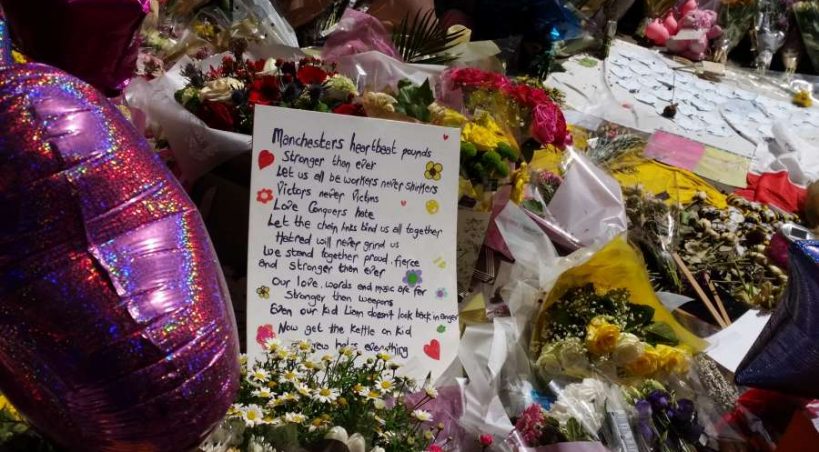 Manchesters heartbeat pounds
Stronger than ever
Let us all be workers never shirkers
Victors never Victims
Love Conquers hate
Let the chain links bind us all together
Hatred will never grind us
We stand together proud, fierce
and Stronger then ever
Our love, words and music are far
Stronger then weapons
Even our kid Liam doesn't look back in anger
Now get the Kettle on Kid
everything